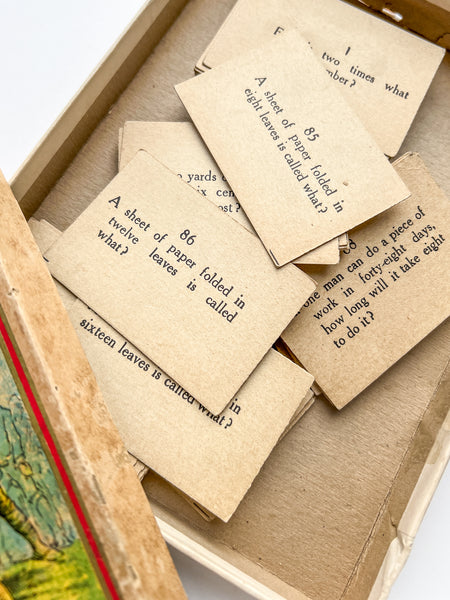 1
two times what
mber?
85
A sheet of paper folded in
eight leaves is called what?
yards o
ix cen
ost?
86
A sheet of paper folded in
twelve leaves is called
what?
8
one man can do a piece of
work in forty-eight days,
how long will it take eight
to do it?
in
sixteen leaves is called what?